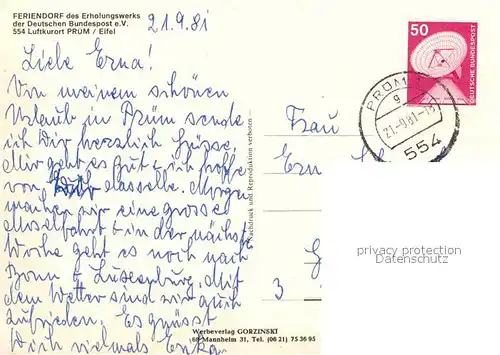 FERIENDORF des Erholungswerks
der Deutschen Bundespost e.V.
554 Luftkurort PRÜM / Eifel
21.9.81
Liebe Erna!
Von meinem schönen
Urlaub in Prüm sende
ich Dir herzlich Grüsse,
Mir geht es gut & ich hoffe
von Dir dasselbe. Morgen
machen wir eine grosse
Moselfahrt & in der nächste
Woche geht es noch nach
Bonn & Luxemburg. Mit
dem Wetter sind wir auch
zufrieden. Es grüsst
Dich vielmals Erika
Nachdruck und Reproduktion verboten
Werbeverlag GORZINSKI
68 Mannheim 31, Tel. (06 21) 75 36 95
50
DEUTSCHE BUNDESPOST
PRÜM
g
21.-9.81.-1
554
Frau
Ern
3
privacy protection
Datenschutz